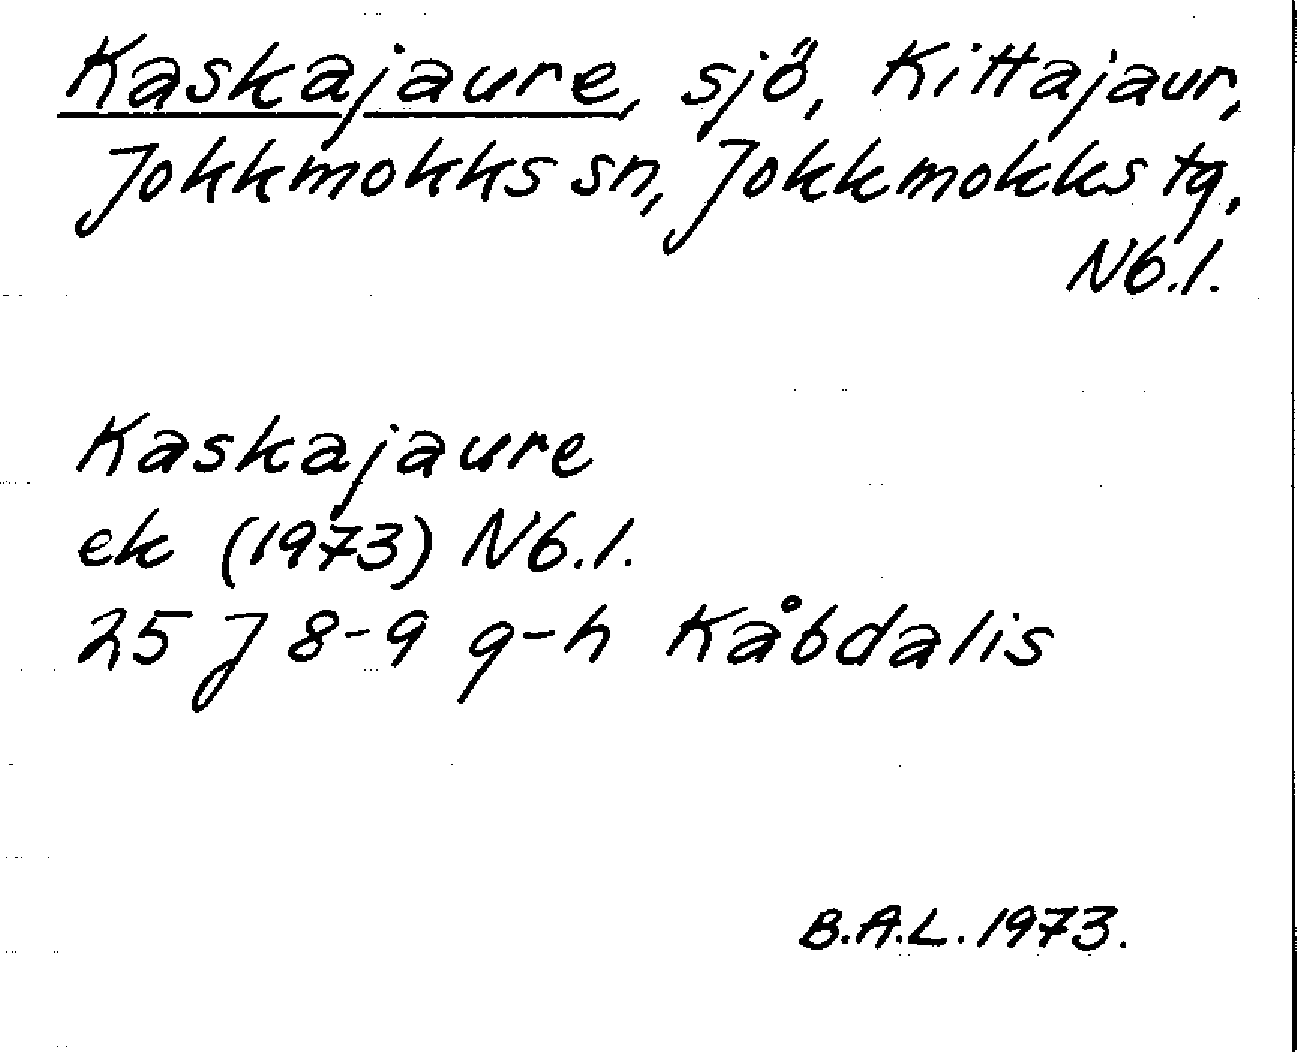 Kaskajaure, sjö, Kittajaur,
Jokkmokks sn, Jokkmokks tg,
Nb.l.
Kaskajaure
ek (1973) Nb.l.
25 J 8-9 g-h Kåbdalis
B.A.L. 1973.